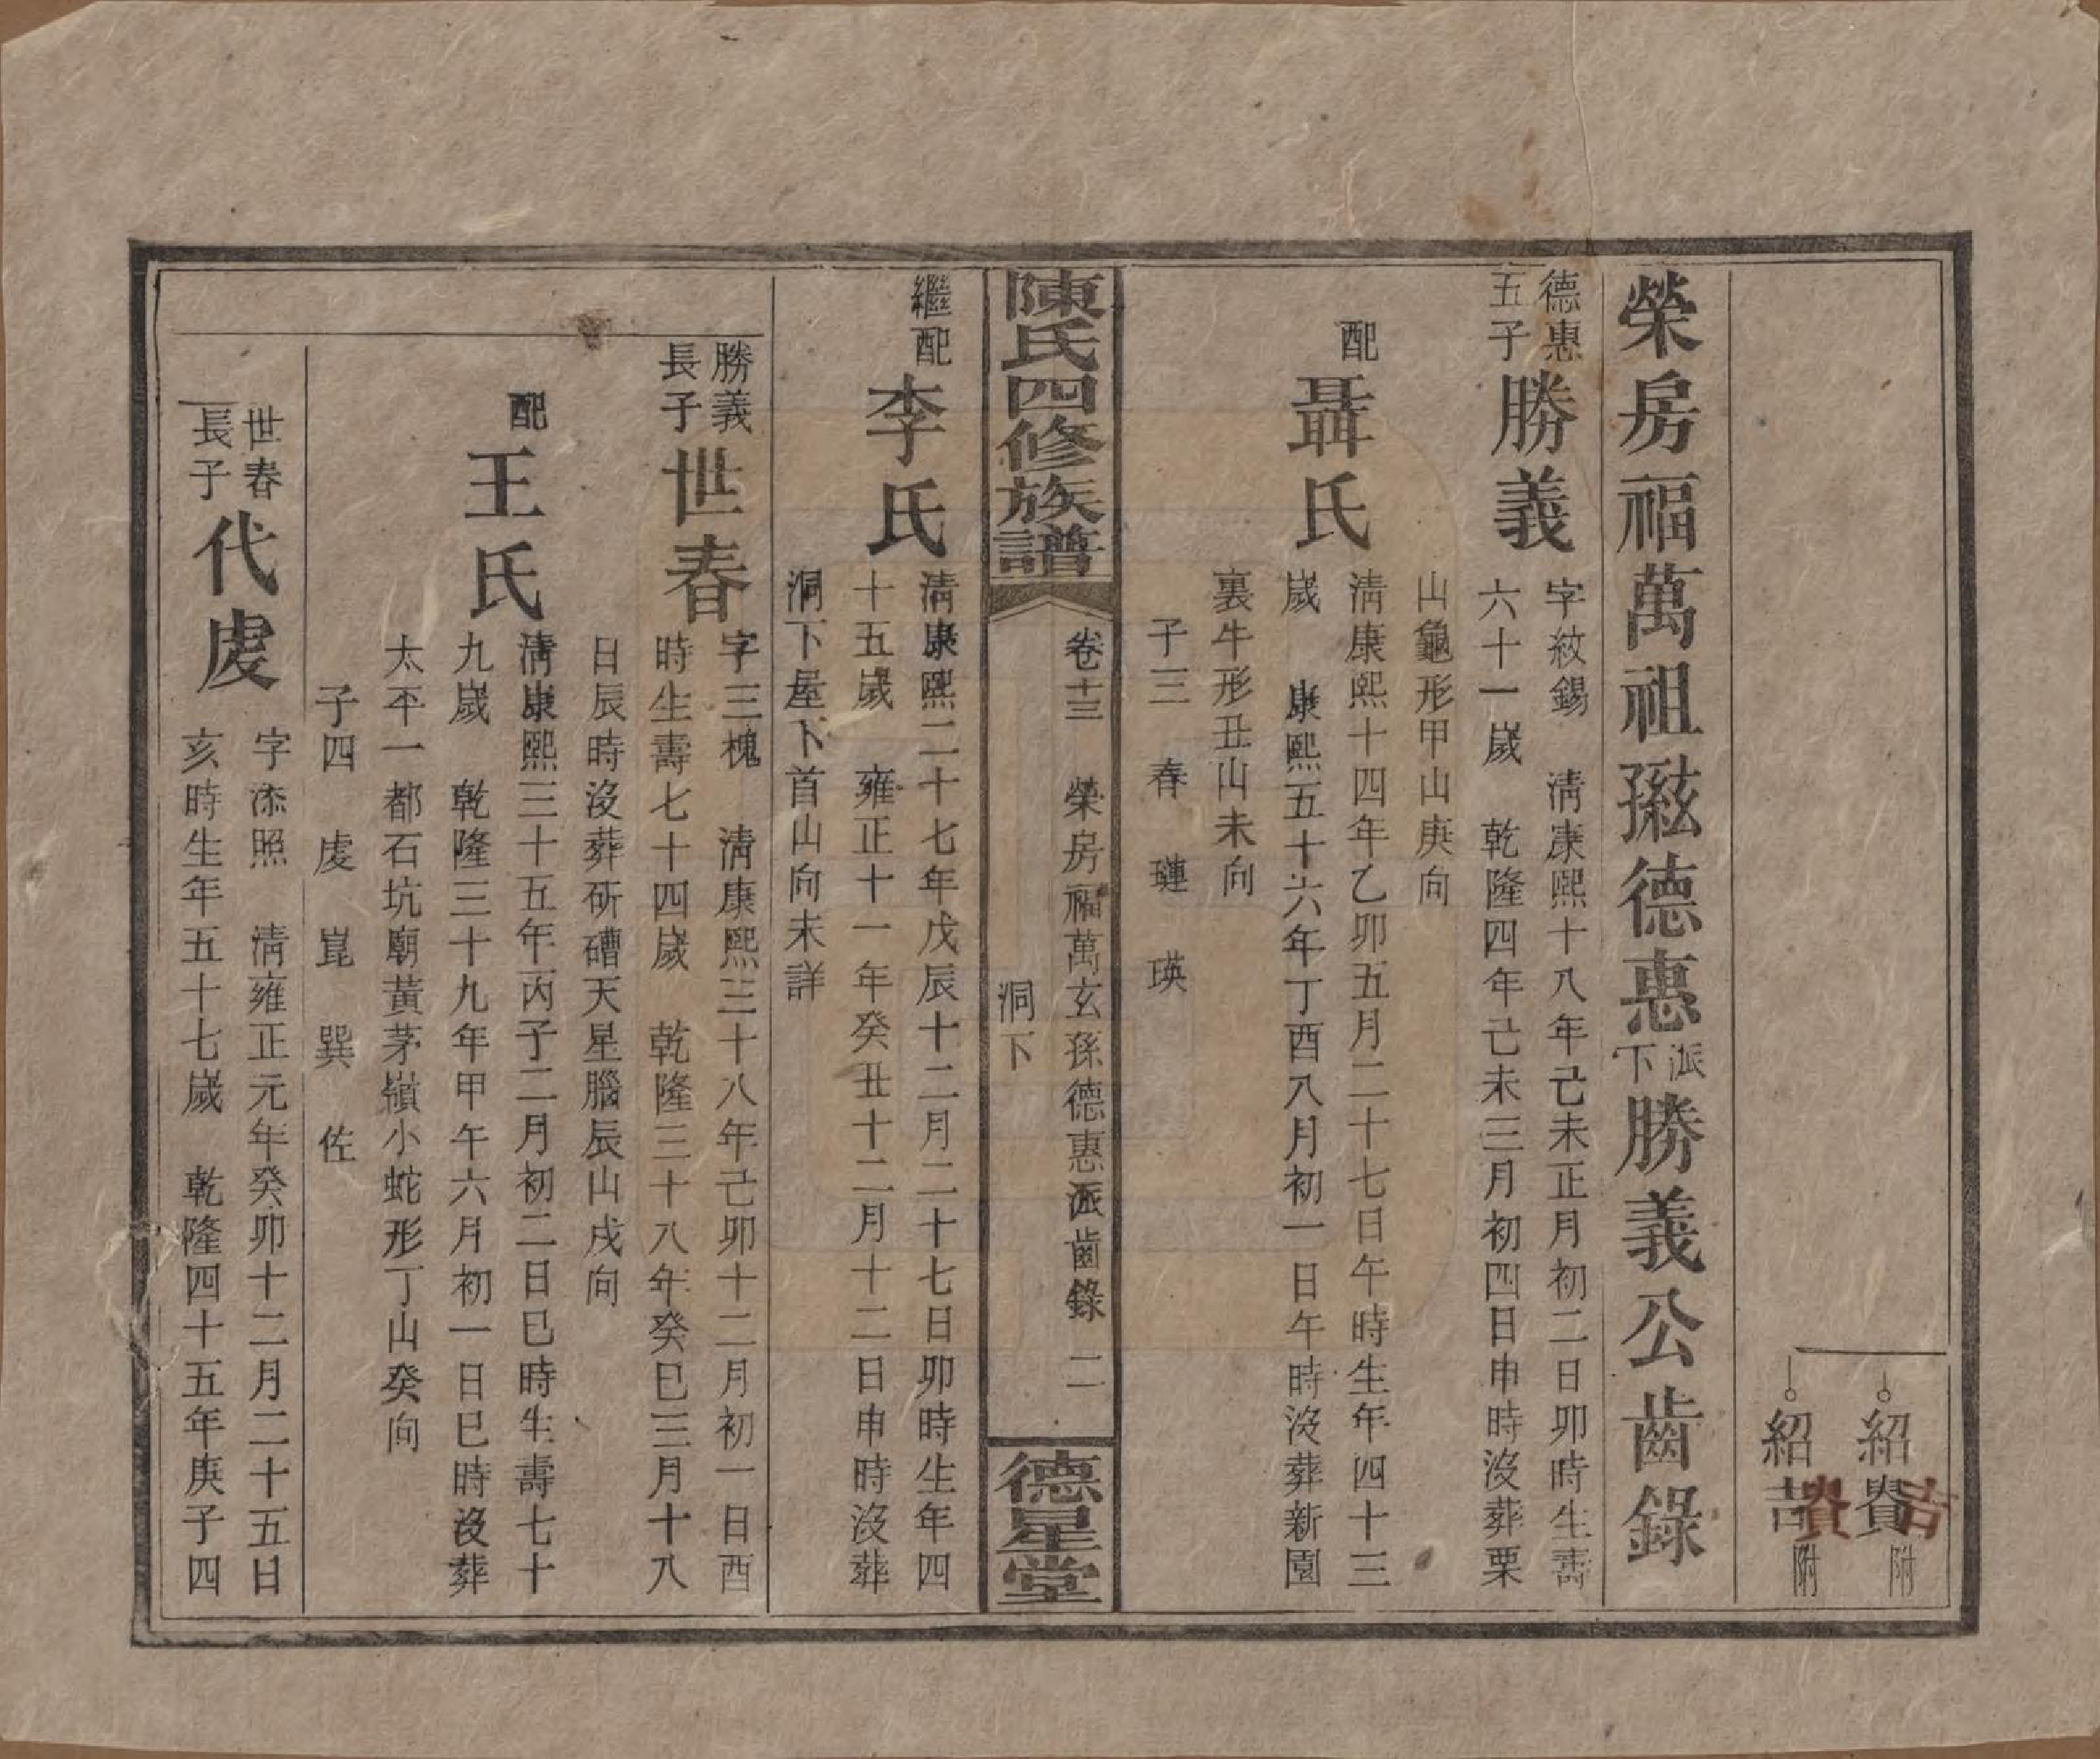 紹賚附
吉
紹吉附
賚
榮房福萬祖孫玆德惠派下勝義公齒錄
德惠五子
勝義
字紋錫 清康熙十八年己未正月初二日卯時生壽
六十一歲 乾隆四年己未三月初四日申時沒葬栗
山龜形甲山庚向
配
聶氏
清康熙十四年乙卯五月二十七日午時生年四十三
歲 康熙五十六年丁酉八月初一日午時沒葬新園
裏牛形丑山未向
子三 春 璉 瑛
陳氏四修族譜
卷十三 榮房福萬玄孫德惠派齒錄 二
洞下
德星堂
繼配
李氏
清康熙二十七年戊辰十二月二十七日卯時生年四
十五歲 雍正十一年癸丑十二月十二日申時沒葬
洞下屋下首山向未詳
勝義長子
世春
字三槐 清康熙三十八年己卯十二月初一日酉
時生壽七十四歲 乾隆三十八年癸巳三月十八
日辰時沒葬研磄天星腦辰山戌向
配
王氏
清康熙三十五年丙子二月初二日巳時生壽七十
九歲 乾隆三十九年甲午六月初一日巳時沒葬
太平一都石坑廟黃茅嶺小蛇形丁山癸向
子四 虔 崑 巽 佐
世春長子
代虔
字添照 清雍正元年癸卯十二月二十五日
亥時生年五十七歲 乾隆四十五年庚子四